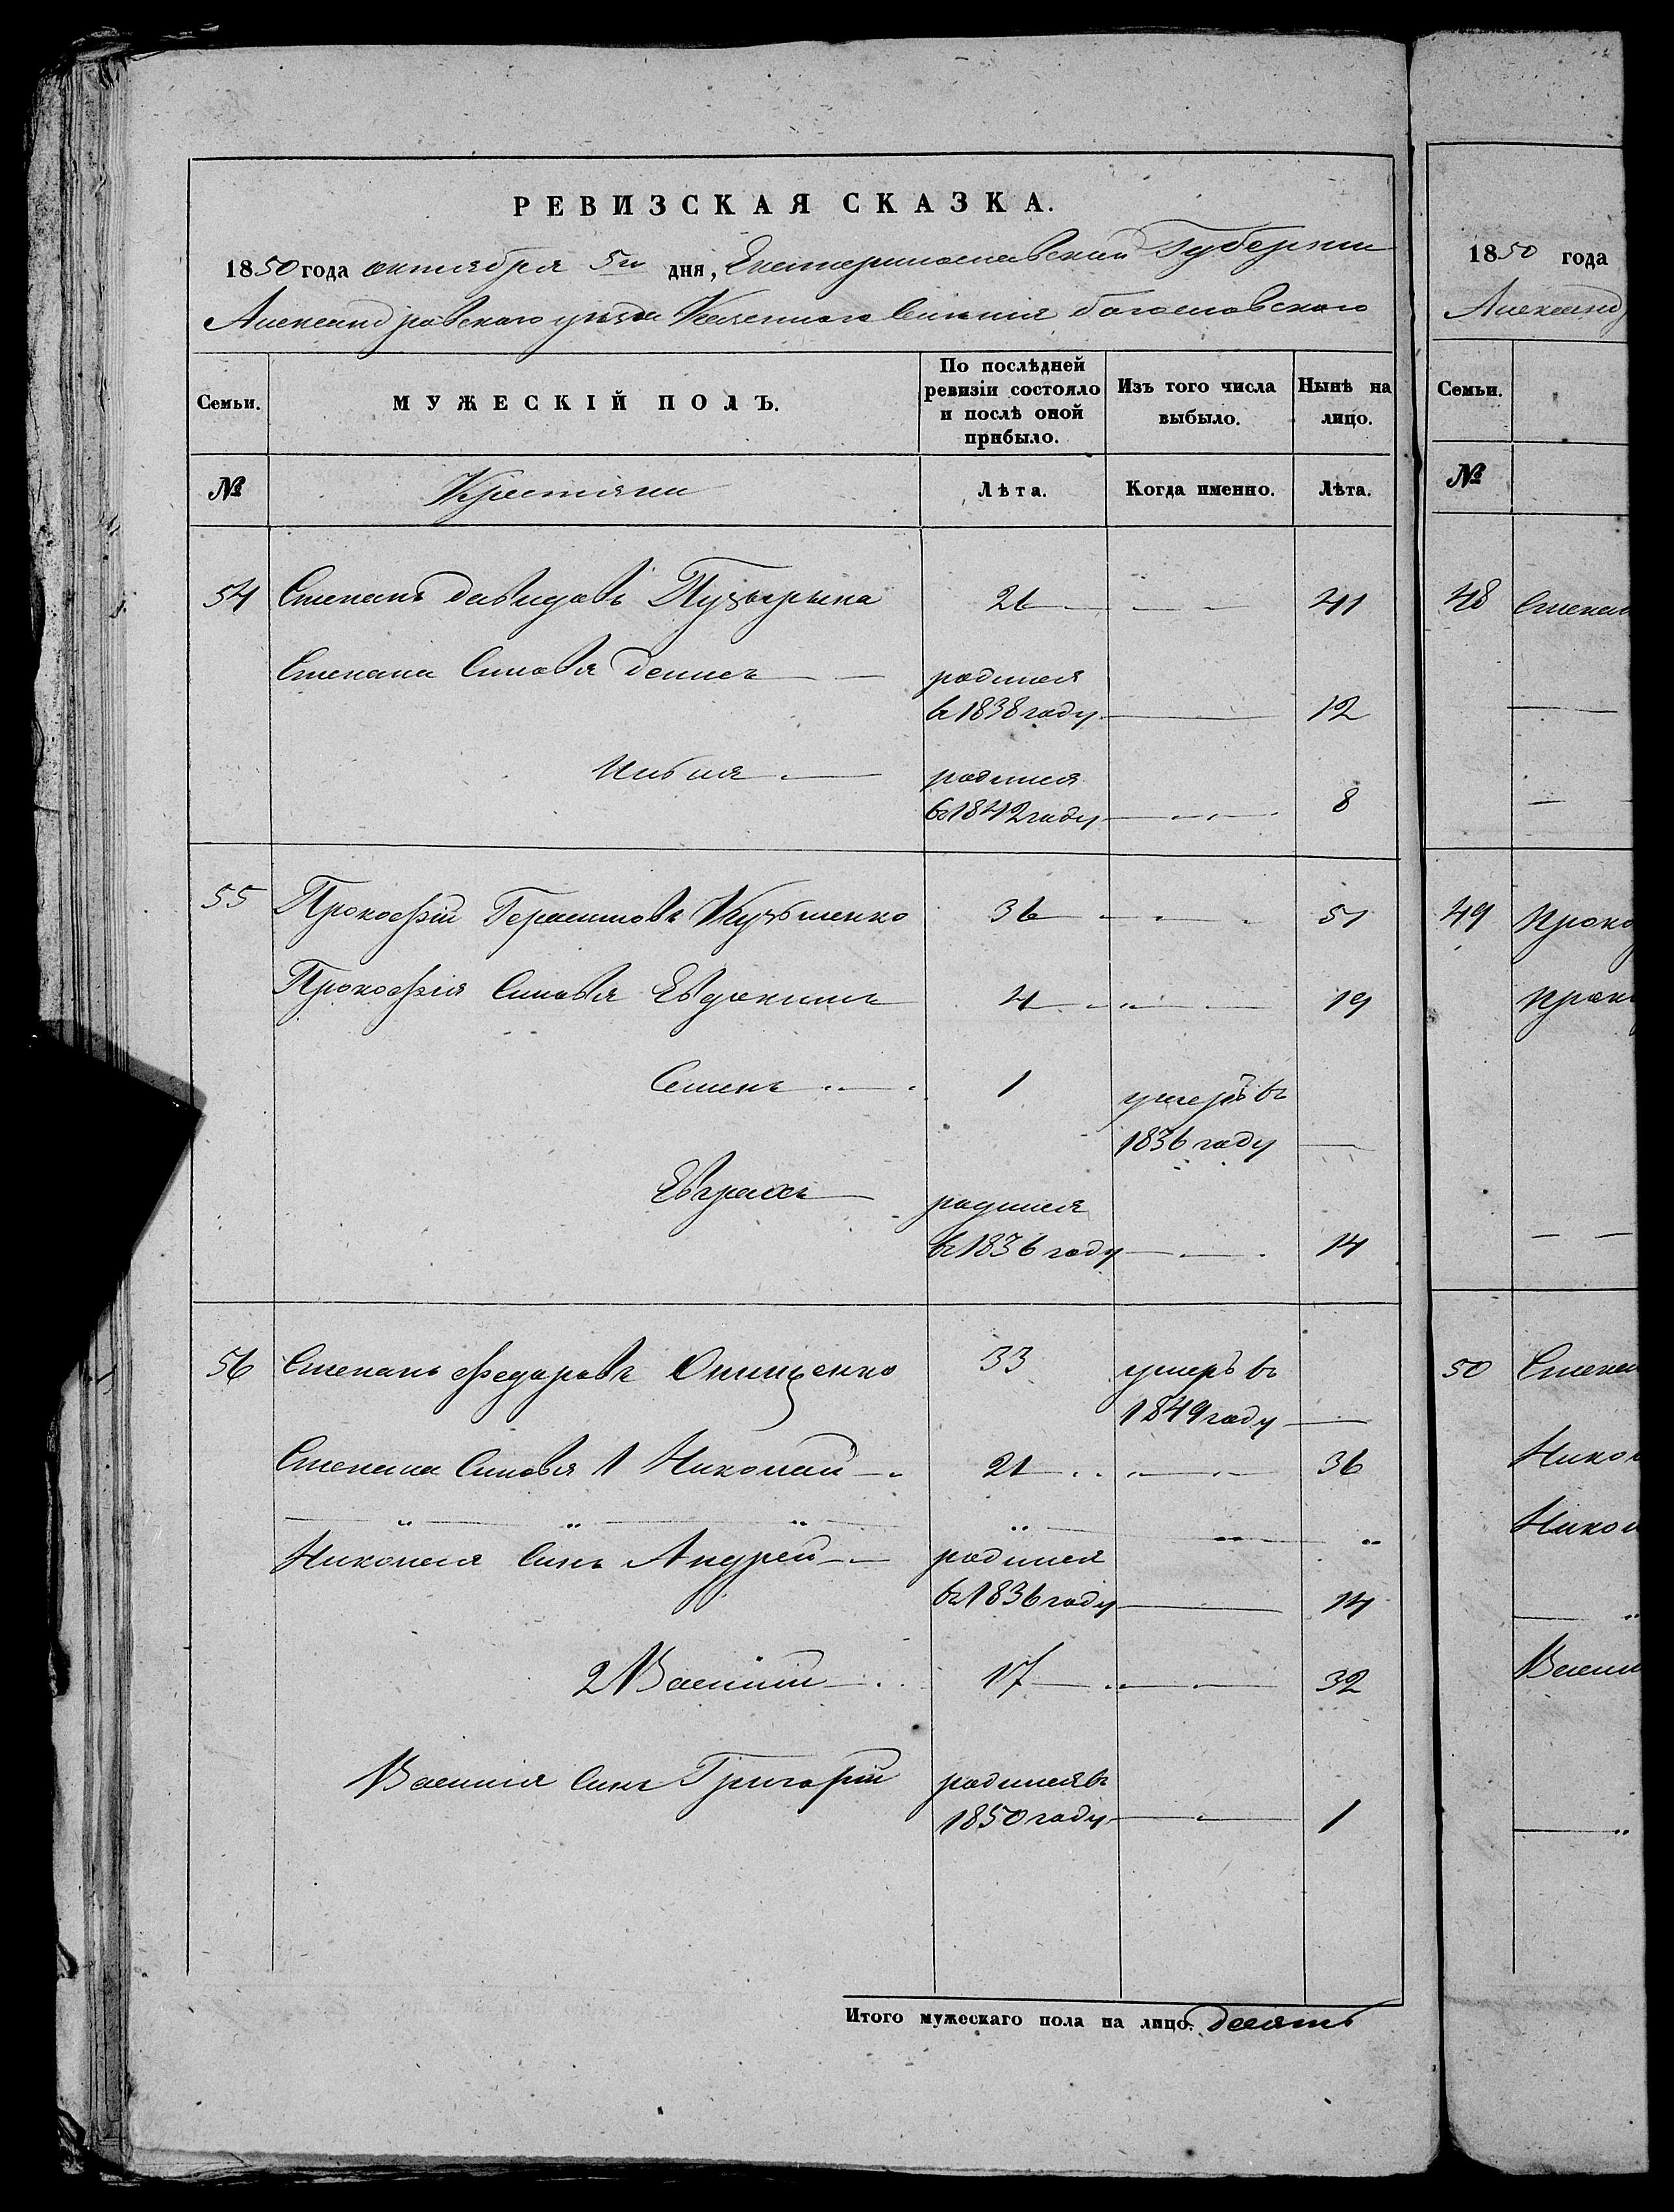 РЕВИЗСКАЯ СКАЗКА.
1850 года октября 5го дня, Екатеринославской Губернии
Александровского уезда Казенного Селения богословского
Семьи. МУЖЕСКІЙ ПОЛЪ. По послѣдней ревизіи состояло и послѣ оной прибыло. Изъ того числа выбыло. Нынѣ на лицо.
№ Крестяни Лѣта. Когда именно. Лѣта.
54 Степанъ давидовъ Пузырька 26 41
Степана Синовя денисъ родился
въ 1838 году 12
родился
въ 1842 году 8
55 Прокофій Герасимовъ Кузменко 36 51
Прокофія Синовя Евдокимъ 4 19
Семенъ 1 умеръ въ
1836 году
Евграфъ родился
въ 1836 году 14
56 Степанъ Федоровъ Онищенко 33 умеръ въ
1849 году
Степана Синовя 1 Николай 21 36
Николая Синъ Андрей родился
въ 1836 году 14
2 Василій 17 32
Василія Синъ Григорій родился въ
1850 году 1
Итого мужескаго пола на лицо. десять
1850 года
Александ
Семьи.
№
48 Степан
49 Проко
Прок
50 Степа
Никол
Никол
Васил